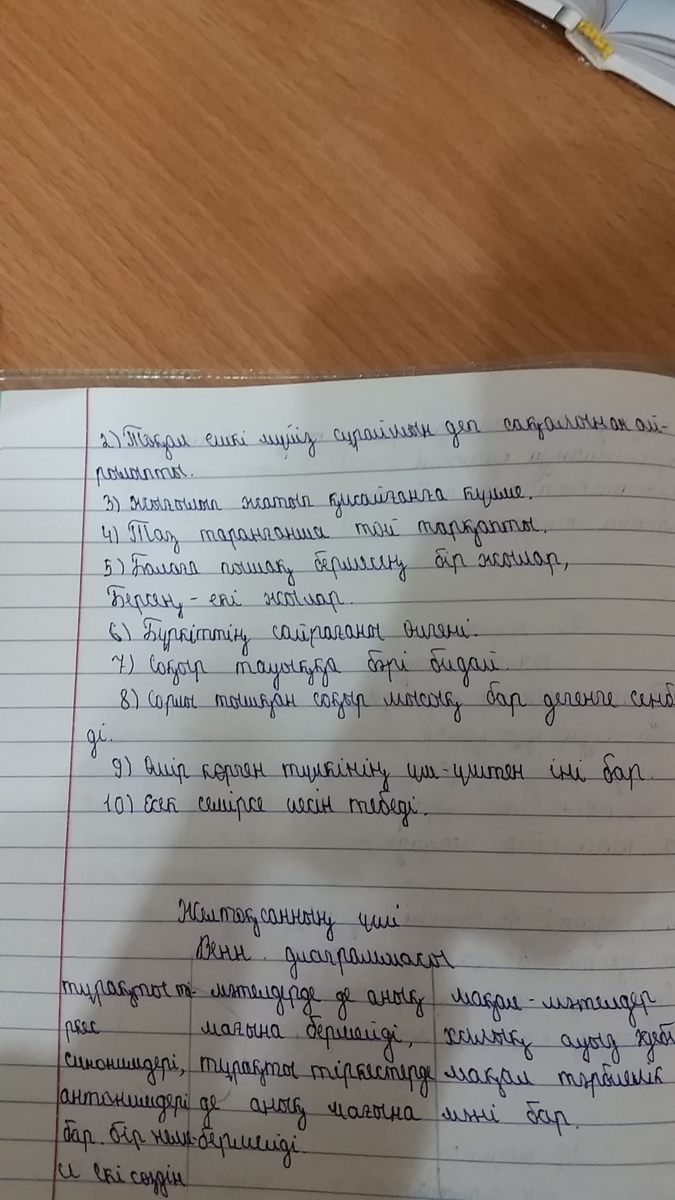 2) Тоқал ешкі мүйіз сұраймын деп сақалынан ай-
рылыпты.
3) Жығылып жатып қисайғанға күлме.
4) Таз таранғанша той тарқапты.
5) Балаға пышақ бермесең бір жылар,
Берсең - екі жылар.
6) Бүркіттің сайрағаны өлгені.
7) Соқыр тауыққа бәрі бидай.
8) Соры тышқан соқыр мысық бар дегенге сенб
ді.
9) Өмір көрген түлкінің үш-үштен іні бар
10) Есек семірсе иесін тебеді.
Желтоқсанның үші
Венн диаграммасы
тұрақты ті- мәтелдерде де анық мақал-мәтелдер
ркес мағына бермейді, халық ауыз әдебі
синонимдері, тұрақты тіркестерде мақал тәрбиелік
антонимдері де анық мағына мәні бар.
бар. бір неме- бермейді.
се екі сөздін